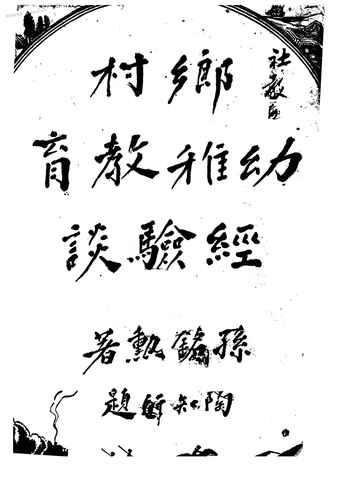 社教
鄉村
幼稚教育
經驗談
孫銘勳著
陶知行題